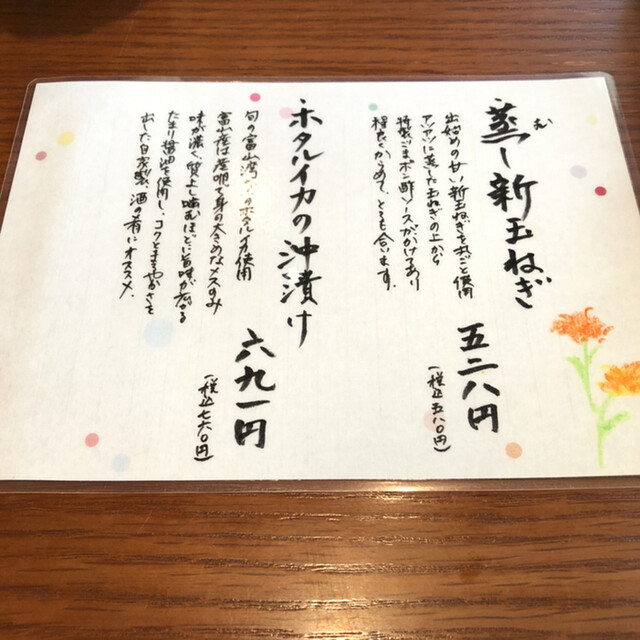 蒸し新玉ねぎ
む
出始めの甘い新玉ねぎを丸ごと使用
アツアツに蒸した玉ねぎの上から
特製ごまポン酢ソースがかけあり
相良くからめて、とても合います。
五二八円
(税込五八〇円)
ホタルイカの沖漬け
旬の富山湾のホタルイカ使用
富山産は産卵で身の大きめなメスのみ
味が濃く、質よし噛むほどに旨味が広がる
たまり醤油を使用し、コクとまろやかさを
出した自家製、酒の肴にオススメ。
六九一円
(税込七六〇円)